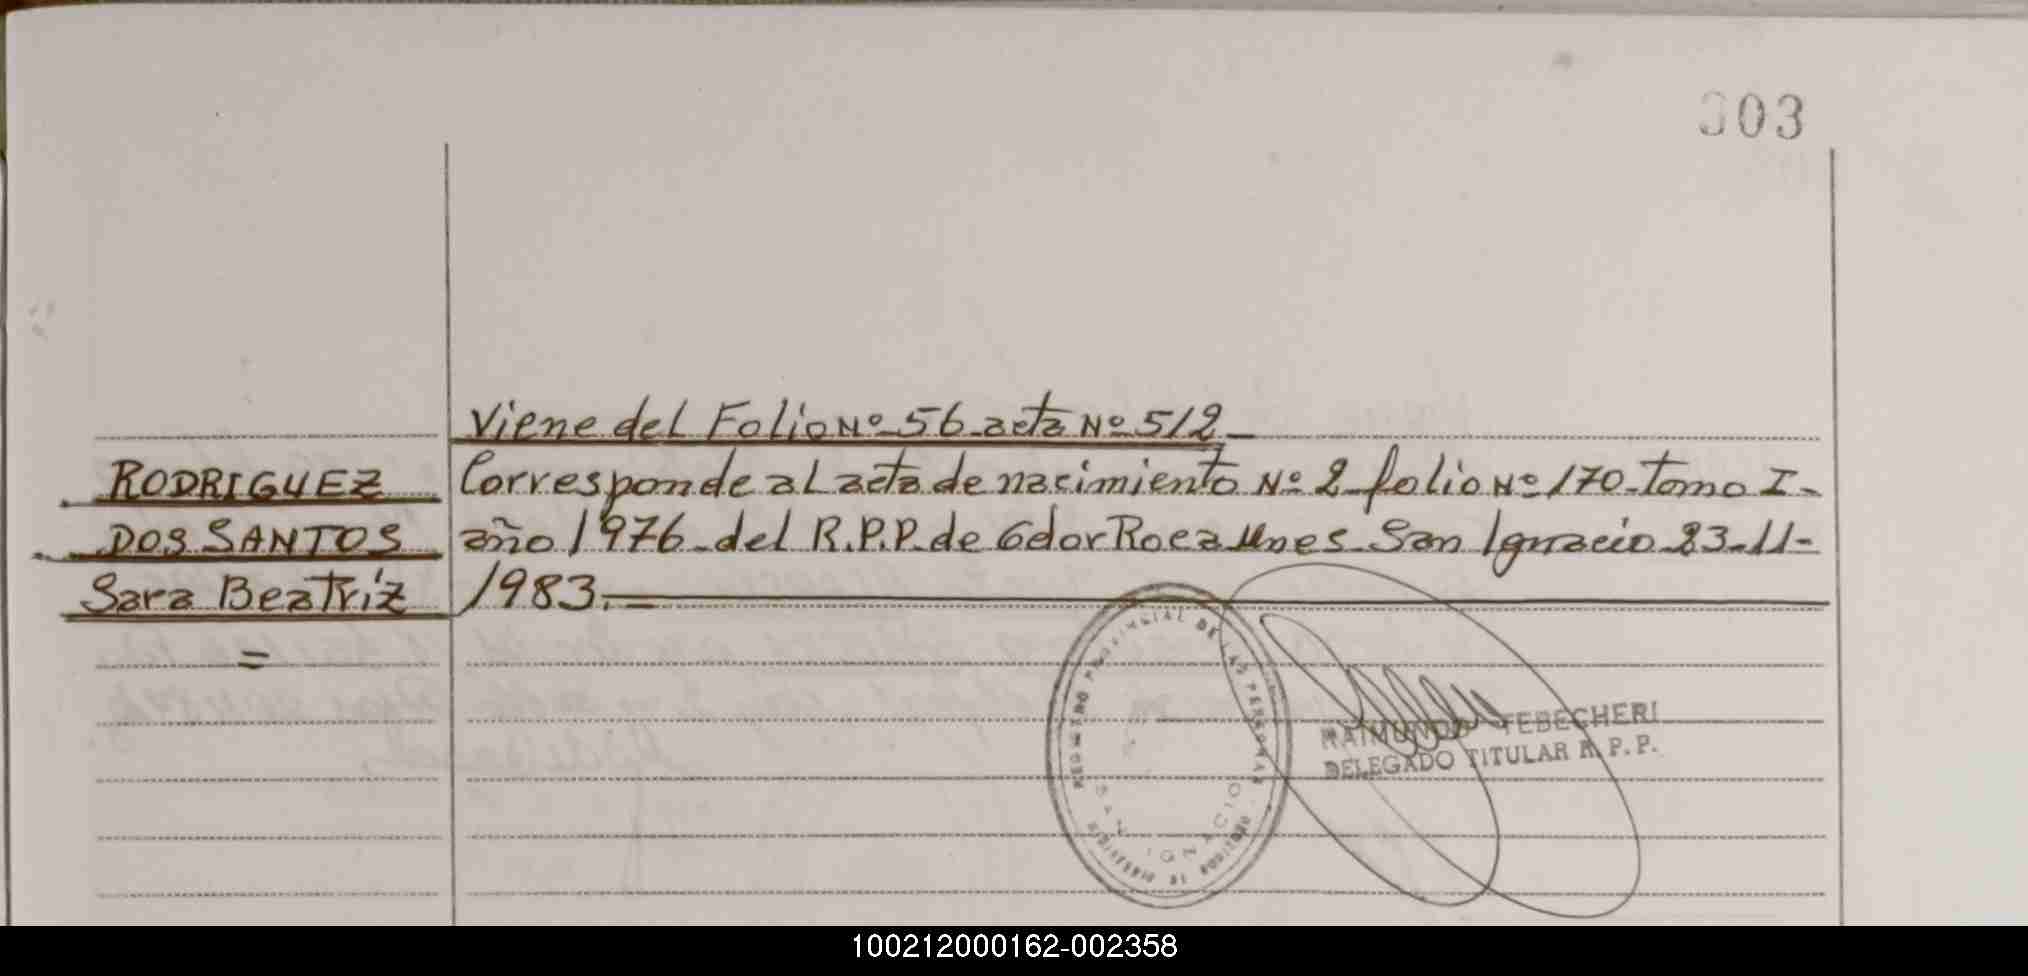 303
Viene del Folio Nº 56 acta Nº 512
RODRIGUEZ
DOS SANTOS
Sara Beatríz
=
Corresponde al acta de nacimiento Nº 2 folio Nº 170 - Tomo I -
año 1976 - del R.P.P. de Gdor Roca Mnes - San Ignacio 23-11-
1983.=
REGISTRO PROVINCIAL DE LAS PERSONAS
SAN IGNACIO
RAIMUNDO TEBECHERI
DELEGADO TITULAR R. P. P.
100212000162-002358